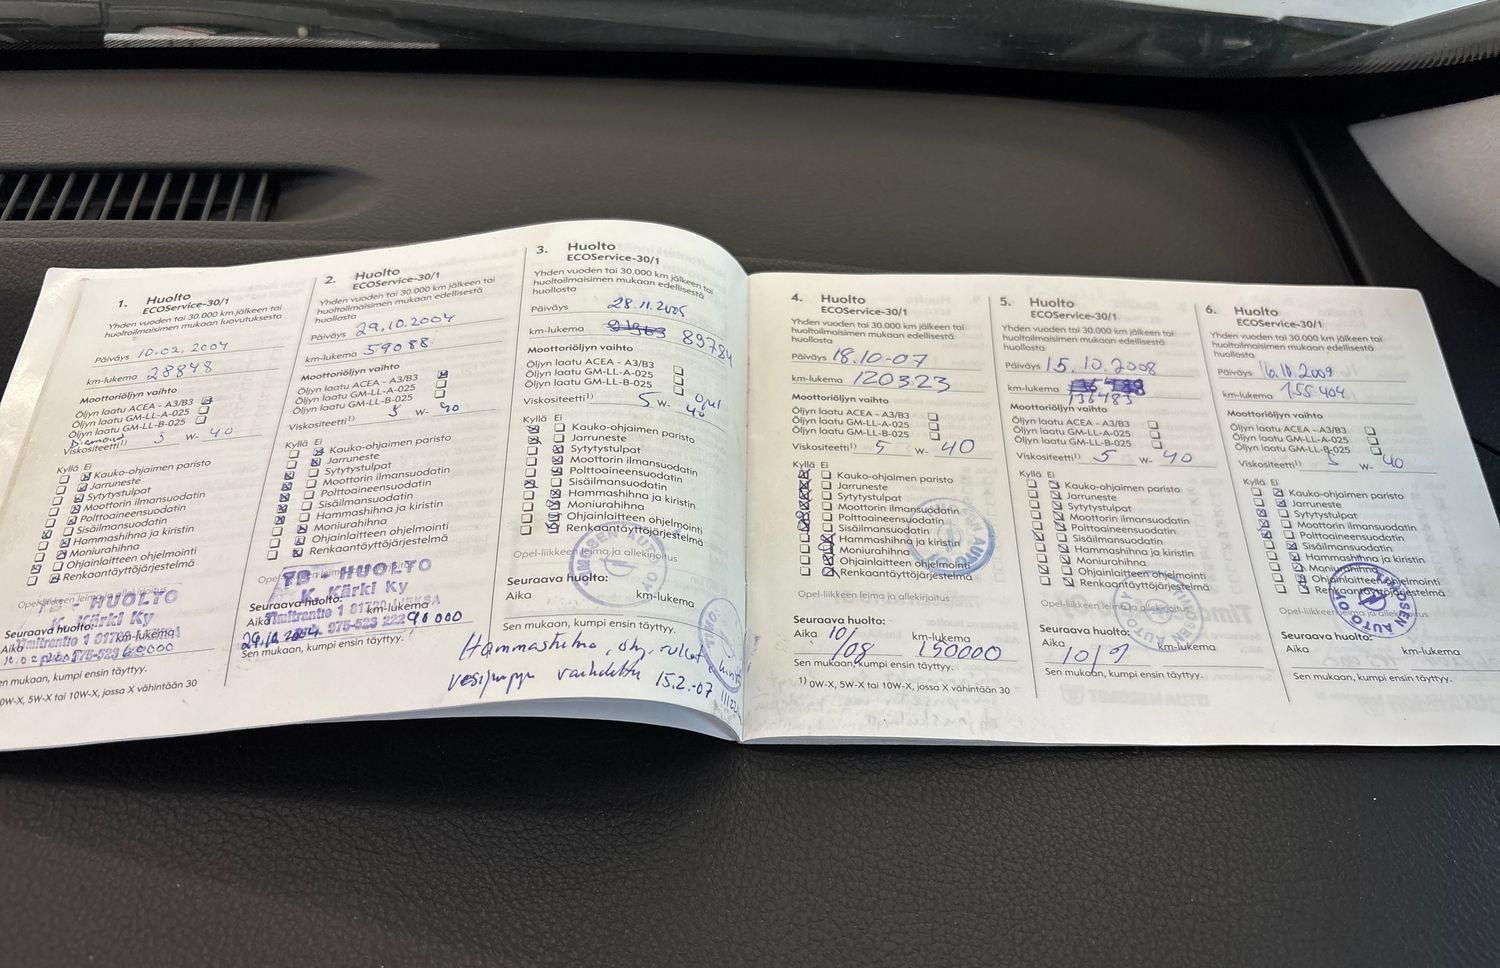 1. Huolto
ECOService-30/1
Yhden vuoden tai 30.000 km jälkeen tai
huoltoilmaisimen mukaan luovutuksesta
Päiväys 10.02.2004
km-lukema 28848
Moottoriöljyn vaihto
Öljyn laatu ACEA - A3/B3
Öljyn laatu GM-LL-A-025
Öljyn laatu GM-LL-B-025
Diamond
Viskositeetti¹) 5 W- 40
Kyllä Ei
Kauko-ohjaimen paristo
Jarruneste
Sytytystulpat
Moottorin ilmansuodatin
Polttoaineensuodatin
Sisäilmansuodatin
Hammashihna ja kiristin
Moniurahihna
Ohjainlaitteen ohjelmointi
Renkaantäyttöjärjestelmä
Opel-liikkeen leima ja allekirjoitus
TB - HUOLTO
K. Kärki Ky
Seuraava huolto:
Aika km-lukema
60000
Sen mukaan, kumpi ensin täyttyy.
0W-X, 5W-X tai 10W-X, jossa X vähintään 30
2. Huolto
ECOService-30/1
Yhden vuoden tai 30.000 km jälkeen tai
huoltoilmaisimen mukaan edellisestä
huollosta
Päiväys 29.10.2004
km-lukema 59088
Moottoriöljyn vaihto
Öljyn laatu ACEA - A3/B3
Öljyn laatu GM-LL-A-025
Öljyn laatu GM-LL-B-025
Viskositeetti¹) 5 W- 40
Kyllä Ei
Kauko-ohjaimen paristo
Jarruneste
Sytytystulpat
Moottorin ilmansuodatin
Polttoaineensuodatin
Sisäilmansuodatin
Hammashihna ja kiristin
Moniurahihna
Ohjainlaitteen ohjelmointi
Renkaantäyttöjärjestelmä
TB - HUOLTO
K. Kärki Ky
Seuraava huolto:
Aika km-lukema
90000
Sen mukaan, kumpi ensin täyttyy.
3. Huolto
ECOService-30/1
Yhden vuoden tai 30.000 km jälkeen tai
huoltoilmaisimen mukaan edellisestä
huollosta
Päiväys 28.11.2005
km-lukema 89784
Moottoriöljyn vaihto
Öljyn laatu ACEA - A3/B3
Öljyn laatu GM-LL-A-025
Öljyn laatu GM-LL-B-025
Opel
Viskositeetti¹) 5 W- 40
Kyllä Ei
Kauko-ohjaimen paristo
Jarruneste
Sytytystulpat
Moottorin ilmansuodatin
Polttoaineensuodatin
Sisäilmansuodatin
Hammashihna ja kiristin
Moniurahihna
Ohjainlaitteen ohjelmointi
Renkaantäyttöjärjestelmä
Opel-liikkeen leima ja allekirjoitus
Seuraava huolto:
Aika km-lukema
Sen mukaan, kumpi ensin täyttyy.
Hammashihna, ohj. rullat
vesipumpun 15.2.-07
4. Huolto
ECOService-30/1
Yhden vuoden tai 30.000 km jälkeen tai
huoltoilmaisimen mukaan edellisestä
huollosta
Päiväys 18.10-07
km-lukema 120323
Moottoriöljyn vaihto
Öljyn laatu ACEA - A3/B3
Öljyn laatu GM-LL-A-025
Öljyn laatu GM-LL-B-025
Viskositeetti¹) 5 W- 40
Kyllä Ei
Kauko-ohjaimen paristo
Jarruneste
Sytytystulpat
Moottorin ilmansuodatin
Polttoaineensuodatin
Sisäilmansuodatin
Hammashihna ja kiristin
Moniurahihna
Ohjainlaitteen ohjelmointi
Renkaantäyttöjärjestelmä
Opel-liikkeen leima ja allekirjoitus
Seuraava huolto:
Aika 10/08 km-lukema 150000
Sen mukaan, kumpi ensin täyttyy.
1) 0W-X, 5W-X tai 10W-X, jossa X vähintään 30
5. Huolto
ECOService-30/1
Yhden vuoden tai 30.000 km jälkeen tai
huoltoilmaisimen mukaan edellisestä
huollosta
Päiväys 15.10.2008
km-lukema 136483
Moottoriöljyn vaihto
Öljyn laatu ACEA - A3/B3
Öljyn laatu GM-LL-A-025
Öljyn laatu GM-LL-B-025
Viskositeetti¹) 5 W- 40
Kyllä Ei
Kauko-ohjaimen paristo
Jarruneste
Sytytystulpat
Moottorin ilmansuodatin
Polttoaineensuodatin
Sisäilmansuodatin
Hammashihna ja kiristin
Moniurahihna
Ohjainlaitteen ohjelmointi
Renkaantäyttöjärjestelmä
Opel-liikkeen leima ja allekirjoitus
Seuraava huolto:
Aika 10/9 km-lukema
Sen mukaan, kumpi ensin täyttyy.
6. Huolto
ECOService-30/1
Yhden vuoden tai 30.000 km jälkeen tai
huoltoilmaisimen mukaan edellisestä
huollosta
Päiväys 16.10.2009
km-lukema 155404
Moottoriöljyn vaihto
Öljyn laatu ACEA - A3/B3
Öljyn laatu GM-LL-A-025
Öljyn laatu GM-LL-B-025
Viskositeetti¹) 5 W- 40
Kyllä Ei
Kauko-ohjaimen paristo
Jarruneste
Sytytystulpat
Moottorin ilmansuodatin
Polttoaineensuodatin
Sisäilmansuodatin
Hammashihna ja kiristin
Moniurahihna
Ohjainlaitteen ohjelmointi
Renkaantäyttöjärjestelmä
Opel-liikkeen leima ja allekirjoitus
TIMOSEN AUTO OY
Seuraava huolto:
Aika km-lukema
Sen mukaan, kumpi ensin täyttyy.